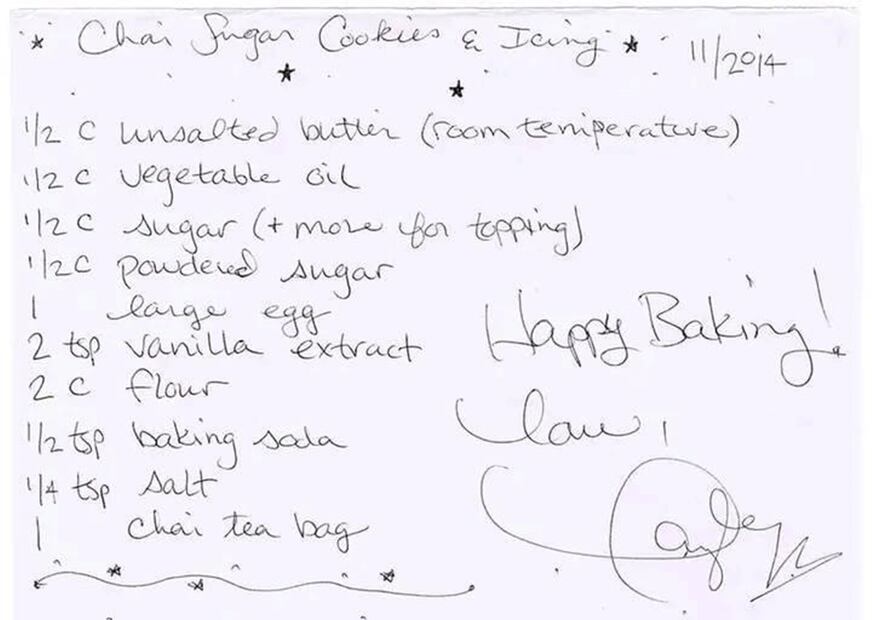 Chai Sugar Cookies & Icing 11/2014
1/2 C unsalted butter (room temperature)
1/2 C vegetable oil
1/2 C sugar (+ more for topping)
1/2 C powdered sugar
1 large egg
2 tsp vanilla extract
2 C flour
1/2 tsp baking soda
1/4 tsp salt
1 chai tea bag
Happy Baking!